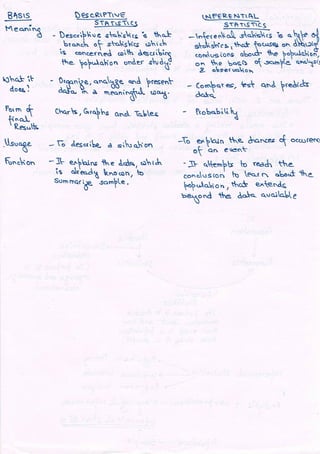 BASIS DESCRIPTIVE STATISTICS INFERENTIAL STATISTICS
Meaning
- Descriptive statistics is that
branch of statistics which
is concerned with describing
the population under study
- Inferential statistics is a type of
statistics, that focuses on drawing
conclusions about the population,
on the basis of sample analysis
& observation
What it does?
- Organize, analyze and present
data in a meaningful way.
- Compares, test and predicts
data
Form of final Results
Charts, Graphs and Tables
- Probability
Usuage
- To describe a situation
- To explain the chances of occurence
of an event
Function
- It explains the data, which
is already known, to
summarize sample.
- It attempts to reach the
conclusion to learn about the
population, that extends
beyond the data available